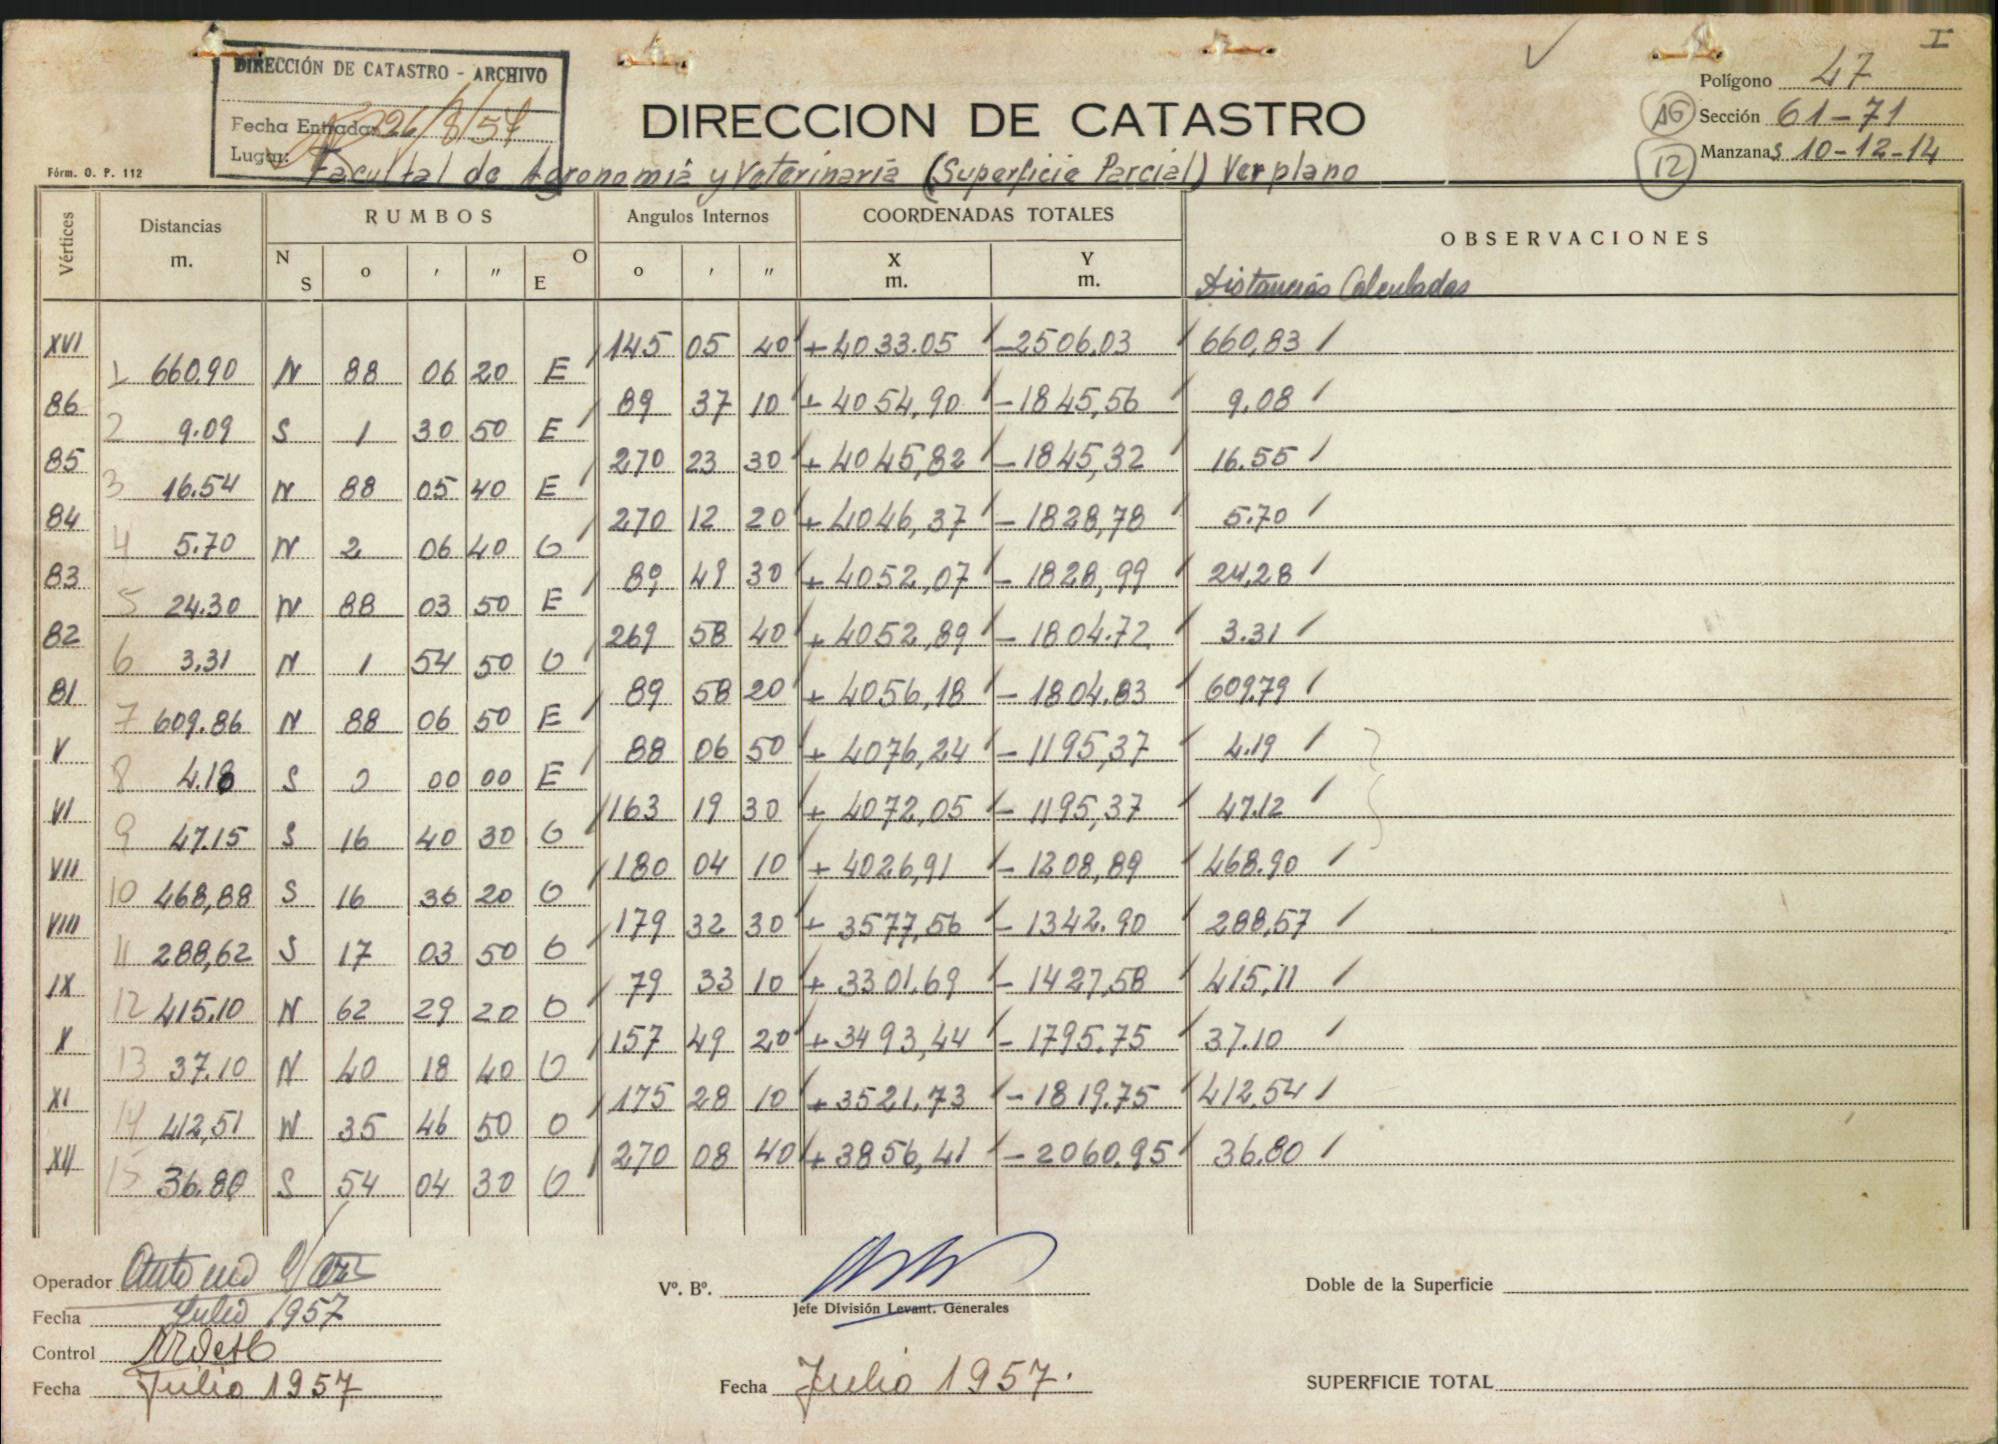 I
DIRECCIÓN DE CATASTRO - ARCHIVO
Fecha Entrada: 26/8/57
Lugar: Facultad de Agronomia y Veterinaria (Superficie Parcial) Ver plano
Fórm. O. P. 112
DIRECCION DE CATASTRO
Polígono 47
16 Sección 61-71
12 Manzanas 10-12-14
Vértices Distancias m. RUMBOS Angulos Internos COORDENADAS TOTALES OBSERVACIONES
N S o ′ ″ E O o ′ ″ X m. Y m. Distancias Calculadas
XVI 145 05 40 +4033.05 -2506.03 660,83
1 660.90 N 88 06 20 E
86 89 37 10 +4054,90 -1845,56 9.08
2 9.09 S 1 30 50 E
85 270 23 30 +4045,82 -1845,32 16.55
3 16.54 N 88 05 40 E
84 270 12 20 +4046,37 -1828,78 5.70
4 5.70 N 2 06 40 O
83 89 49 30 +4052,07 -1828,99 24,28
5 24.30 N 88 03 50 E
82 269 58 40 +4052,89 -1804.72 3.31
6 3.31 N 1 54 50 O
81 89 58 20 +4056,18 -1804.83 609.79
7 609.86 N 88 06 50 E
V 88 06 50 +4076,24 -1195,37 4.19
8 4.18 S 0 00 00 E
VI 163 19 30 +4072,05 -1195,37 47.12
9 47.15 S 16 40 30 O
VII 180 04 10 +4026,91 -1208,89 468.90
10 468,88 S 16 36 20 O
VIII 179 32 30 +3577,56 -1342.90 288,57
11 288,62 S 17 03 50 O
IX 79 33 10 +3301.69 -1427,58 415,11
12 415.10 N 62 29 20 O
X 157 49 20 +3493,44 -1795.75 37.10
13 37.10 N 40 18 40 O
XI 175 28 10 +3521.73 -1819.75 412,54
14 412,51 N 35 46 50 O
XII 270 08 40 +3856,41 -2060.95 36.80
15 36.80 S 54 04 30 O
Operador Antonio
Fecha Julio 1957
Control
Fecha Julio 1957
Vº. Bº.
Jefe División Levant. Generales
Fecha Julio 1957.
Doble de la Superficie
SUPERFICIE TOTAL